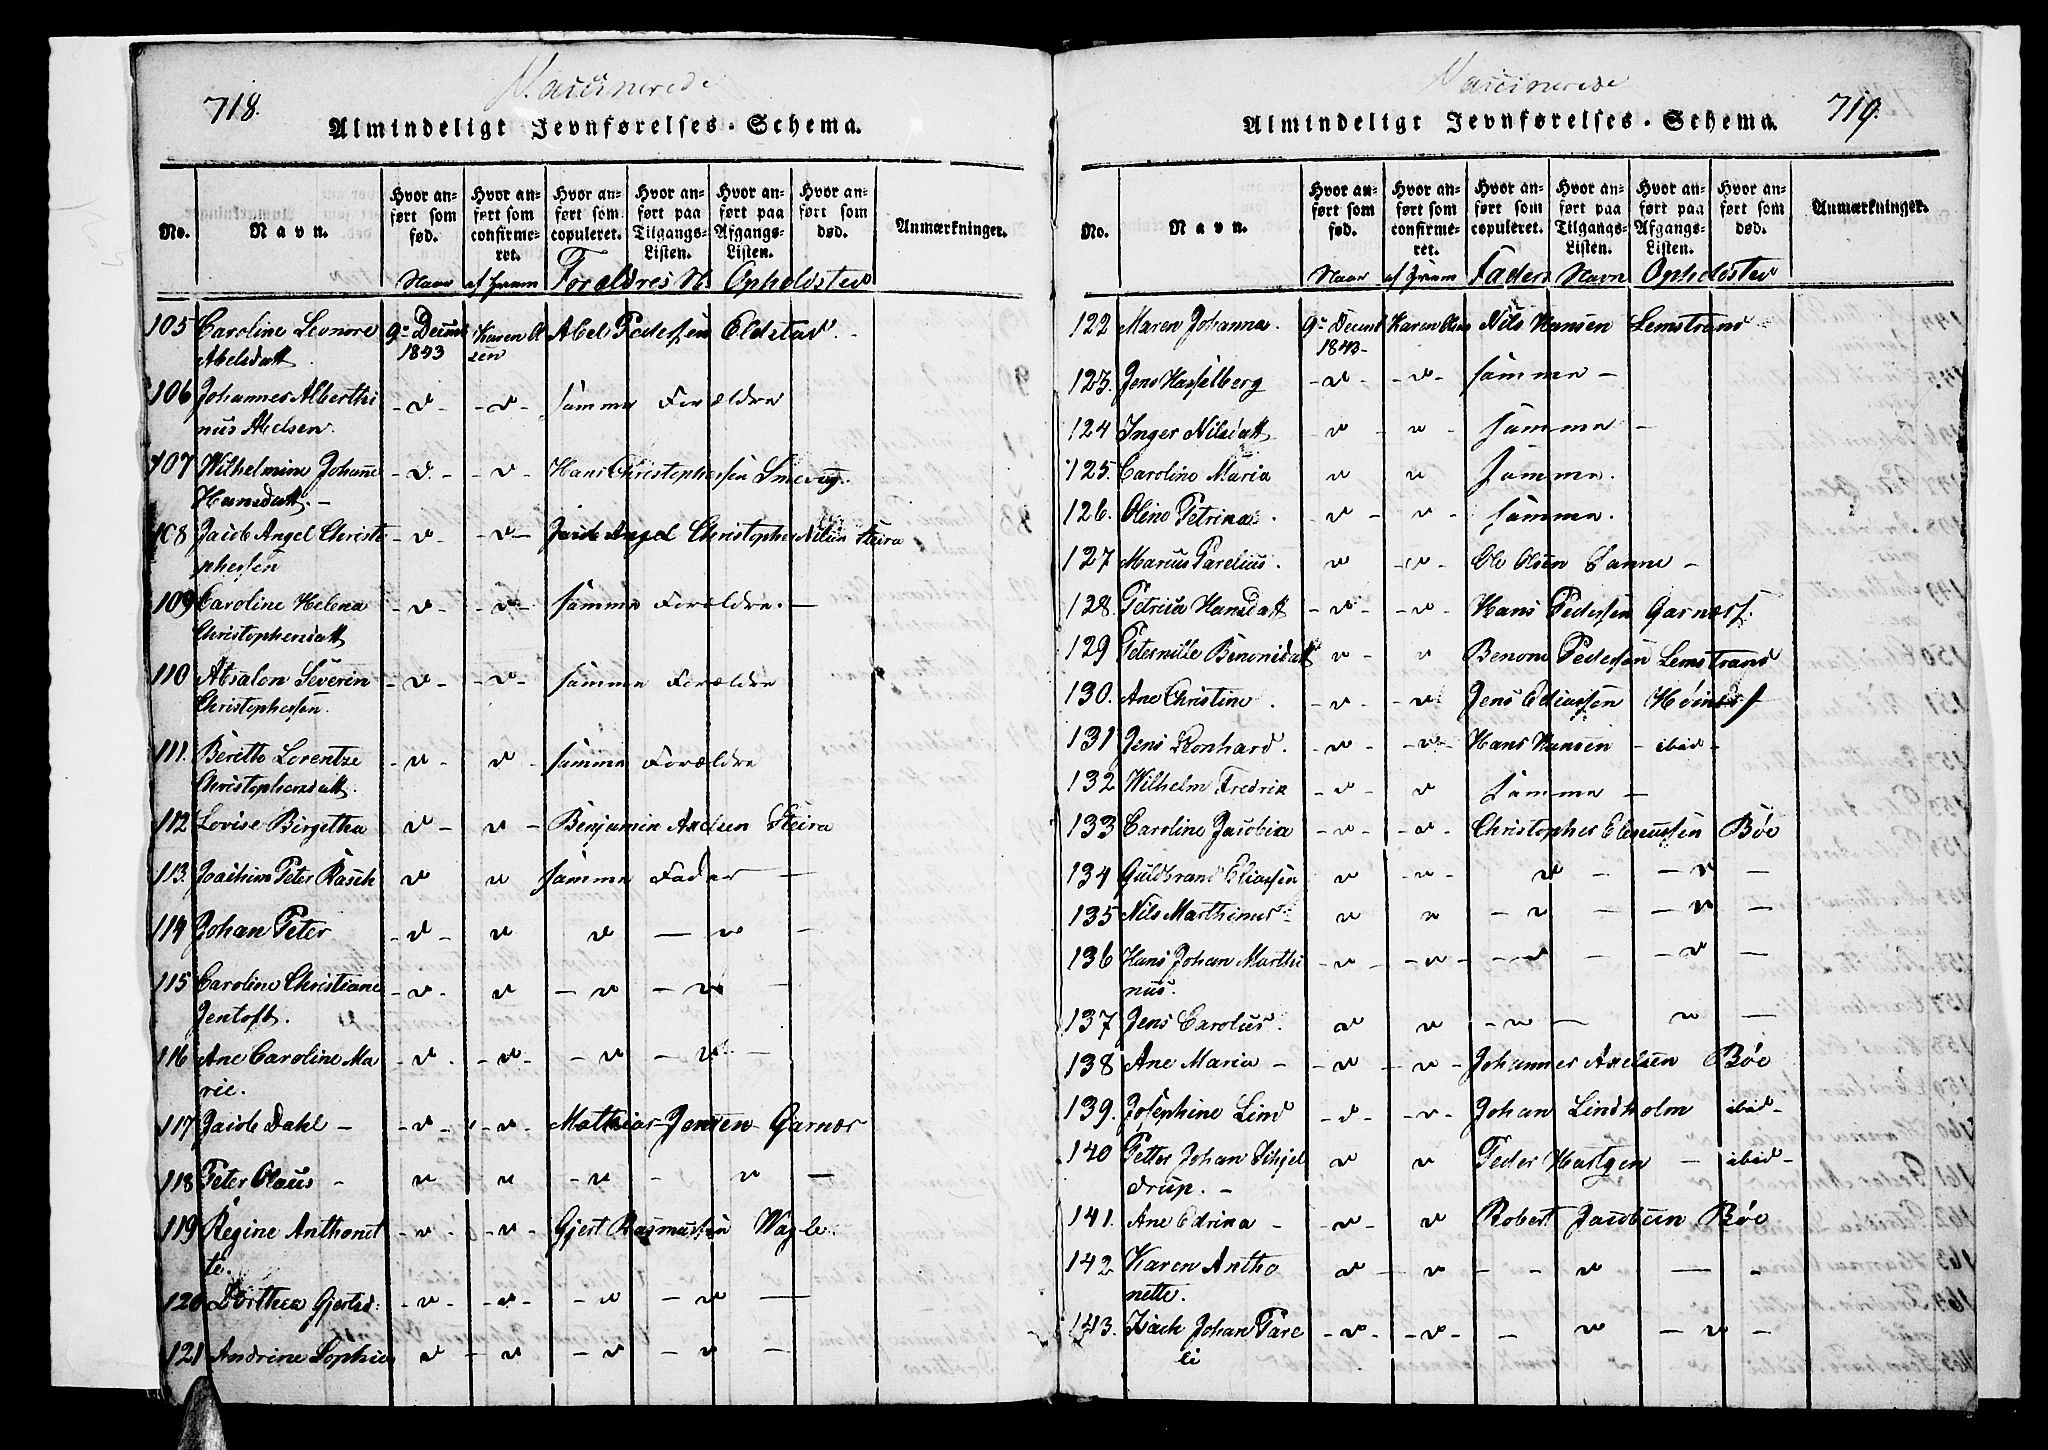 718.
Vaccinerede
Almindeligt Jevnførelses-Schema.
No.
Navn.
Hvor anført som fød.
Hvor anført som confirmeret.
Hvor anført som copuleret.
Hvor anført paa Tilgangs-Listen.
Hvor anført paa Afgangs-Listen.
Hvor anført som død.
Anmærkninger.
Naar af hvem Forældres N. Opholdsted
105 Caroline Leonore 9de Decemb Karen Ol Abel Pedersen Eldstad.
Abelsdatt. 1843 sen
106 Johannes Alberthi - v - - v - samme Forældre
nus Abelsen.
107 Wilhelmine Johanne - v - - v Hans Christophersen Smevug.
Hansdatt. -
108 Jacob Angel Christo - v - - v - Jacob Angel Christopher Nilsen Steira
phersen
109 Caroline Helena - v - - v - samme Forældre. -
Christophersdatt
110 Absalon Severin - v - - v - samme Forældre
Christophersen.
111. Beretho Lorentze - v - - v samme Forældre
Christophersdatt.
112 Lovise Birgetha v - v - Benjamin Axelsen Steira
113. Joachim Peter Rasch v v samme Fader -
114 Johan Peter - v - v v - v -
115 Caroline Christiane - v - v - v - v -
Jentoft.
116 Ane Caroline Ma - v - - v - - v - v -
rie.
117 Jacob Dahl - - v - - v - Mathias Jensen Garnæs
118 Peter Olaus - v v - v - v -
119 Regine Anthonet - v - - v - Gjert Rasmussen Vagle.
te.
120 Dorthea Gjertsd: - v - - v - - v - v -
121 Andrine Sophie v - v - v - v -
719.
Vaccinerede
Almindeligt Jevnførelses-Schema.
No.
Navn.
Hvor anført som fød.
Hvor anført som confirmeret.
Hvor anført som copuleret.
Hvor anført paa Tilgangs-Listen.
Hvor anført paa Afgangs-Listen.
Hvor anført som død.
Anmærkninger.
Naar af hvem Faders Navn Opholdsted
122 Maren Johanna. 9de Decemb Karen Olsen Nils Hansen Lemstrand
1843-
123. Jens Hasselberg - v - - v - samme -
124 Inger Nilsdatt - v - v - samme -
125. Caroline Maria v v samme.
126. Oline Petrina. - v - v - samme.
127 Marcus Parelius. v - v - Ole Olsen Sanne -
128. Petrica Hansdatt - v - - v - Hans Pedersen Garnæss.
129 Peternille Benonisdatt v - v Benoni Pedersen Lemstrand
130. Ane Christine. - v - - v Jens Eliassen Høines
131 Jens Leonhard. - v - - v - Hans Hansen - ibid -
132 Wilhelm Fredrik - v - v samme -
133 Caroline Jacobia - v - - v - Christopher Eleseussen Bøe
134 Guldbrand Eliassen v - v - v - - v -
135 Nils Marthinus v v - v - - v -
136 Hans Johan Marthi - v - - v - - v - v -
nus.
137 Jens Carolus. v v - v - v -
138 Ane Maria - - v - - v - Johannes Axelsen Bøe
139. Josephine Lind - v - - v - Johan Lindholm ibid -
140 Petter Johan v v Peder Hartgen - ibid -
drup. -
141. Ane Edrika - - v - v Robert Jacobsen Bøe
142 Karen Antho v - v - - v - -
nette.
143. Isach Johan Pare - v - - v - - v - v -
li